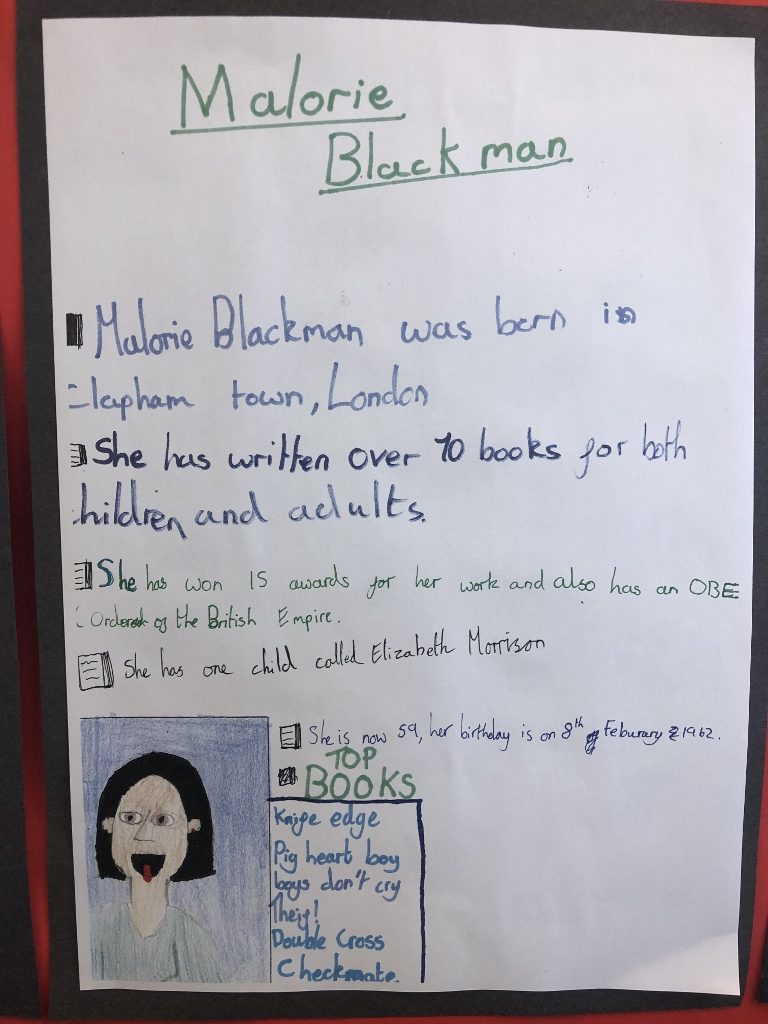 Malorie
Blackman
Malorie Blackman was born in
Clapham town, London
She has written over 70 books for both
children and adults.
She has won 15 awards for her work and also has an OBE
Ordered of the British Empire.
She has one child called Elizabeth Morrison
She is now 59, her birthday is on 8th of Feburary 1962.
TOP
BOOKS
Knife edge
Pig heart boy
boys don't cry
Theif!
Double Cross
Checkmate